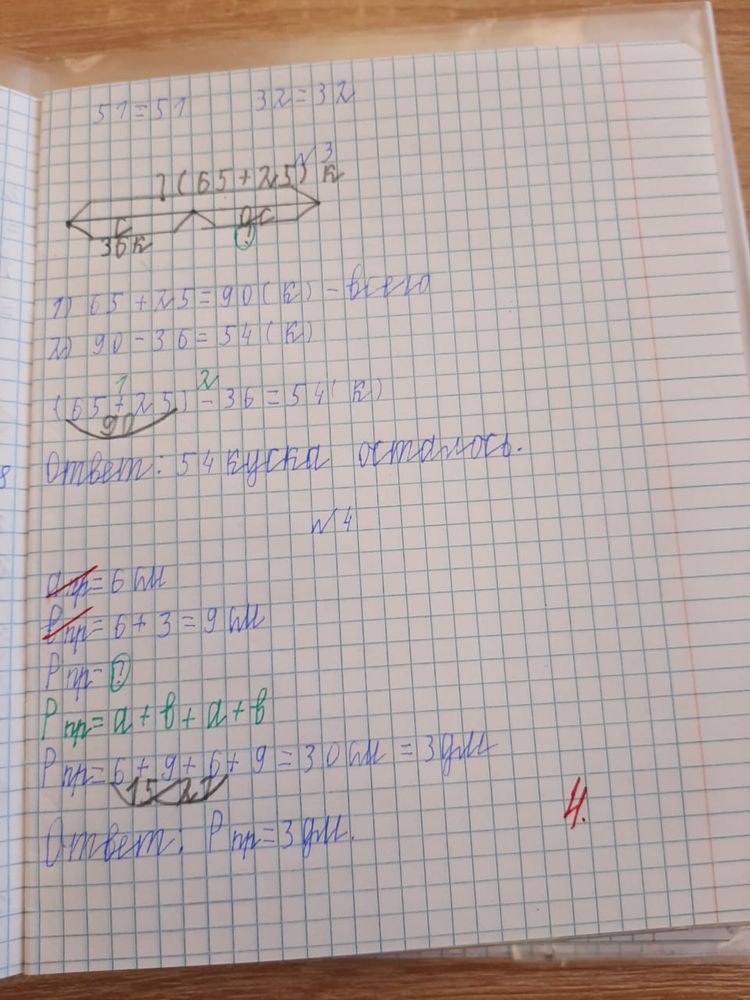 51=51 32=32
№3
?(65+25) к
с ос
36 к ?
1) 65+25=90(к) - всего
2) 90-36=54(к)
1 2
(65+25)-36=54(к)
90
Ответ: 54 куска осталось.
№4
aпр=6см
bпр=6+3=9см
Pпр=?
Pпр=a+b+a+b
Pпр=6+9+6+9=30см=3дм
15 21
4.
Ответ: Pпр=3дм.